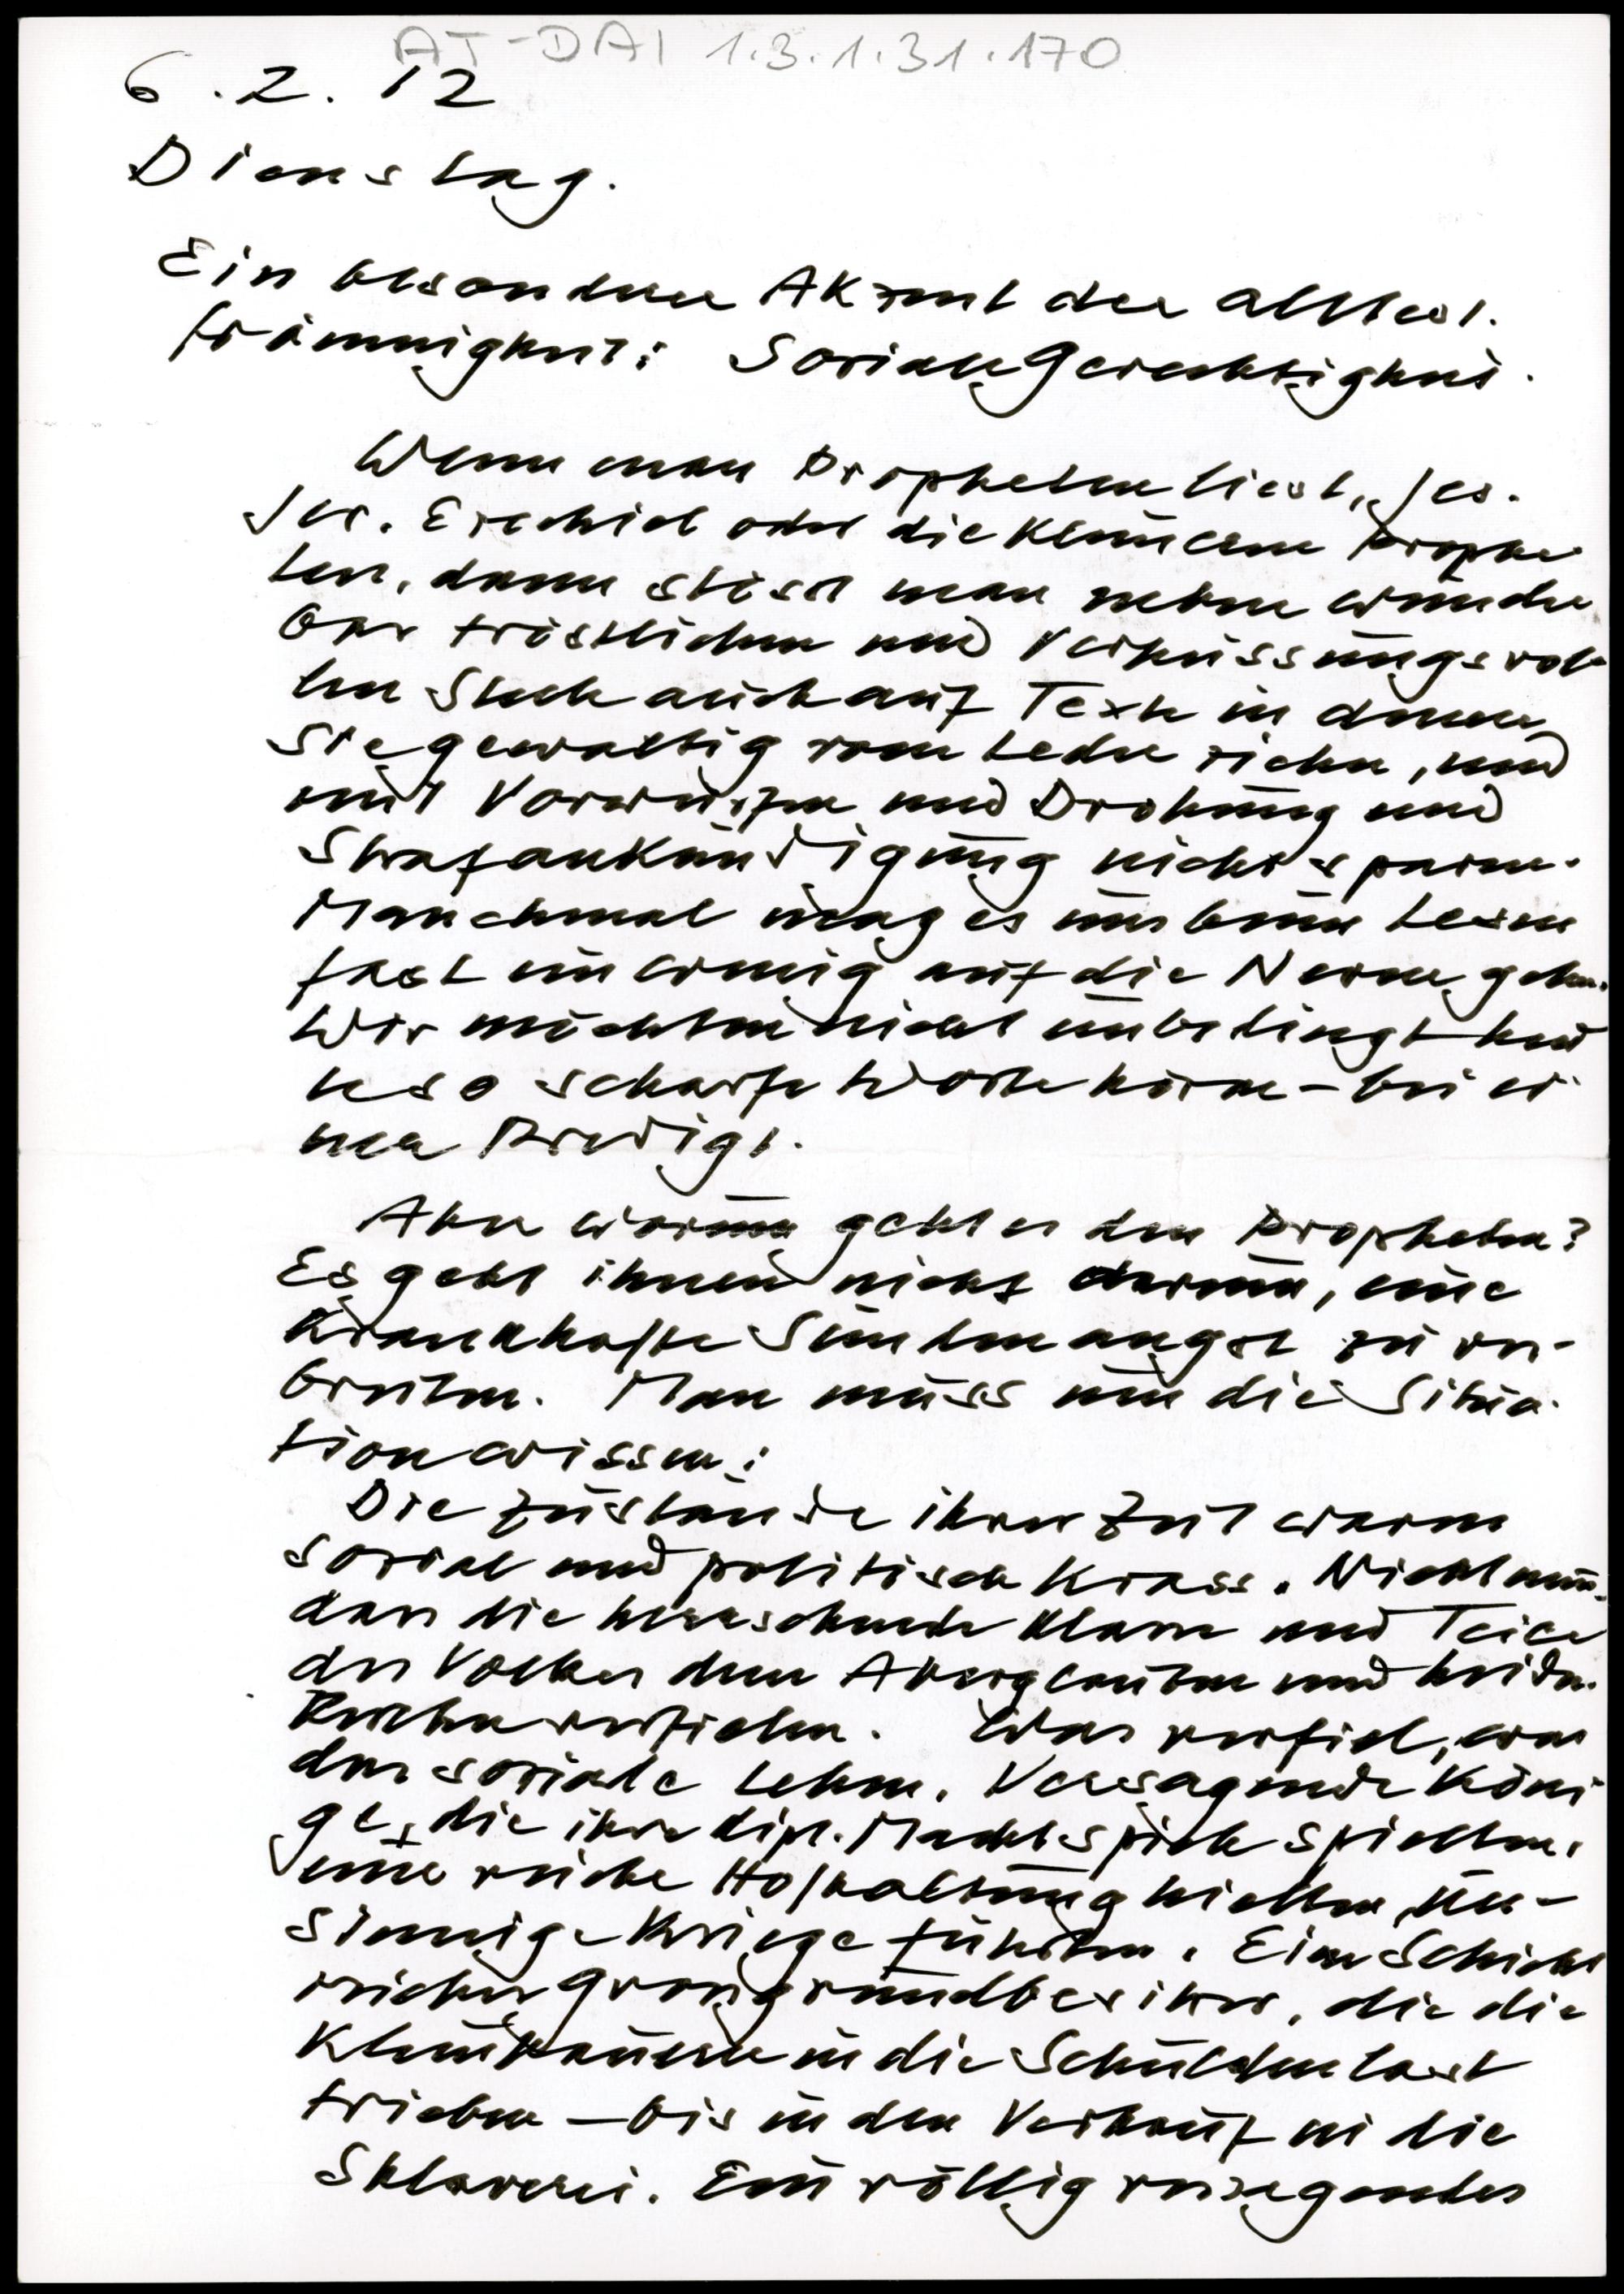 AT-DAI 1.3.1.31.170
6.2.12
Dienstag.
Ein besonderer Akzent der alttest.
Frömmigkeit: Soziale Gerechtigkeit.
Wenn man Propheten liest, Jes.
Jer. Ezechiel oder die kleineren Prophe
ten, dann stösst man neben wunder
bar tröstlichen und verheissungsvol
len Stellen auch auf Texte in denen
sie gewaltig vom Leder ziehen, und
mit Vorwürfen und Drohung und
Strafankündigung nicht sparen.
Manchmal mag es uns beim Lesen
fast ein wenig auf die Nerven gehen.
Wir möchten nicht unbedingt heu
te so scharfe Worte hören - bei ei
ner Predigt.
Aber worum geht es den Propheten?
Es geht ihnen nicht darum, eine
krankhafte Sündenangst zu ver-
breiten. Man muss um die Situa-
tion wissen:
Die Zustände ihrer Zeit waren
sozial und politisch krass. Nicht nur,
dass die herrschende Klasse und Teile
des Volkes dem Aberglauben und heidn.
verfielen. Was verfiel, war
das soziale Leben. Versagende Köni
ge, die ihre dipl. Machtspiele spielten,
eine reiche Hofhaltung hielten, un-
sinnige Kriege führten. Eine Schicht
reicher Grossgrundbesitzer, die die
Kleinbauern in die Schuldenlast
trieben - bis in den Verkauf in die
Sklaverei. Ein völlig versagendes